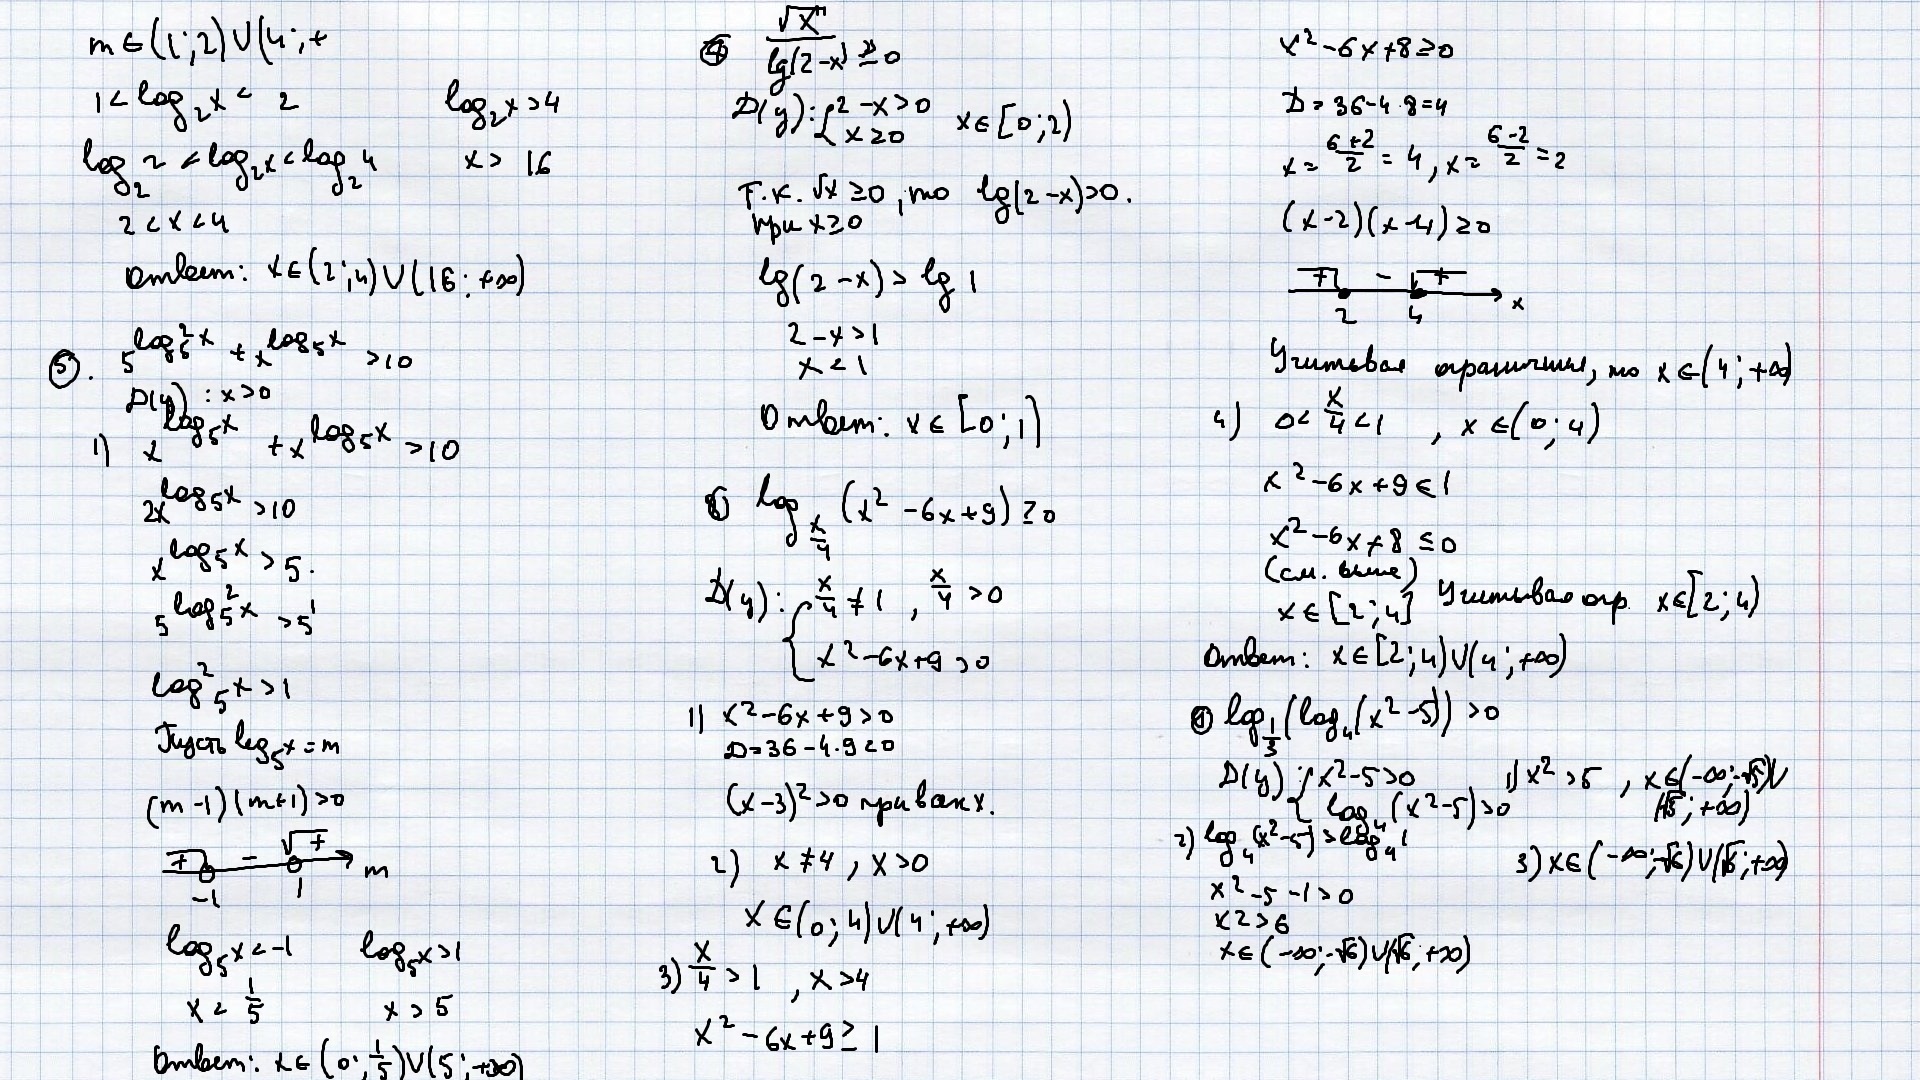 m ∈ (1; 2) ∪ (4; +
1 < log₂x < 2    log₂x > 4
log₂2 < log₂x < log₂4    x > 16
2 < x < 4
Ответ: x ∈ (2; 4) ∪ (16; +∞)
⑤. 5^(log₅²x) + x^(log₅x) > 10
D(y): x > 0
1) x^(log₅x) + x^(log₅x) > 10
2x^(log₅x) > 10
x^(log₅x) > 5.
5^(log₅²x) > 5¹
log²₅x > 1
Пусть log₅x = m
(m-1)(m+1) > 0
+ - +
-1 1 m
log₅x < -1    log₅x > 1
x < 1/5    x > 5
Ответ: x ∈ (0; 1/5) ∪ (5; +∞)
④ √x / lg(2-x) ≥ 0
D(y): { 2-x > 0
x ≥ 0    x ∈ [0; 2)
Т.к. √x ≥ 0, то lg(2-x) > 0.
при x ≥ 0
lg(2-x) > lg 1
2-x > 1
x < 1
Ответ: x ∈ [0; 1)
log_(x/4) (x² - 6x + 9) ≥ 0
D(y): { x/4 ≠ 1, x/4 > 0
x² - 6x + 9 > 0
1) x² - 6x + 9 > 0
D = 36 - 4·9 = 0
(x-3)² > 0 при x.
2) x ≠ 4, x > 0
x ∈ (0; 4) ∪ (4; +∞)
3) x/4 > 1, x > 4
x² - 6x + 9 ≥ 1
x² - 6x + 8 ≥ 0
D = 36 - 4·8 = 4
x = (6+2)/2 = 4, x = (6-2)/2 = 2
(x-2)(x-4) ≥ 0
+ - +
2 4 x
Учитывая ограничения, то x ∈ (4; +∞)
4) 0 < x/4 < 1, x ∈ (0; 4)
x² - 6x + 9 ≤ 1
x² - 6x + 8 ≤ 0
(см. выше)
x ∈ [2; 4] Учитывая огр. x ∈ [2; 4)
Ответ: x ∈ [2; 4) ∪ (4; +∞)
log_(1/3) (log₄(x² - 5)) > 0
D(y): { x² - 5 > 0    1) x² > 5, x ∈ (-∞; -√5) ∪
log₄(x² - 5) > 0    (√5; +∞)
2) log₄(x² - 5) > log₄1
3) x ∈ (-∞; -√6) ∪ (√6; +∞)
x² - 5 - 1 > 0
x2 > 6
x ∈ (-∞; -√6) ∪ (√6; +∞)